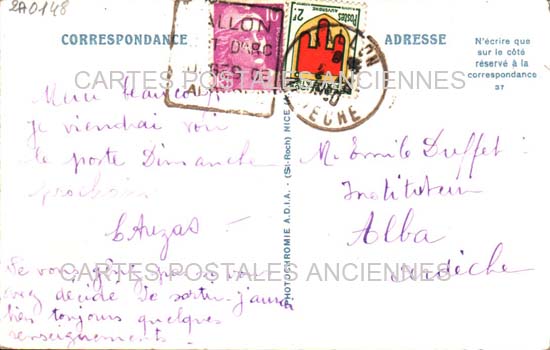 2A0148
CORRESPONDANCE
ADRESSE
N'écrire que
sur le côté
réservé à la
correspondance
37
ALLON
T D'ARC
10
2F
Postes
AUVERGNE
CARTES POSTALES ANCIENNES
Merci beaucoup
Je viendrai voir
le poste Dimanche
prochain
EAuzas
Se vous gênez pas si vous
avez décidé de sortir j'aurai
bien toujours quelques
renseignements
PHOTOCHROMIE A.D.I.A. - (St-Roch) NICE
M. Emile Duffet
Instituteur
Alba
Ardèche
CARTES POSTALES ANCIENNES